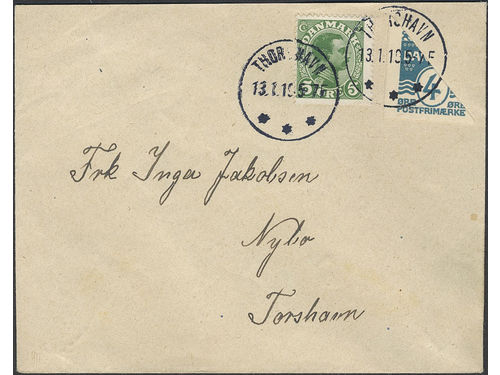 DANMARK
5 ØRE 5
THORSHAVN
13.1.19.5-7E
THORSHAVN
13.1.19.5-7E
4
ØRE ØRE
POSTFRIMÆRKE
Frk Inga Jakobsen
Nybo
Torshavn